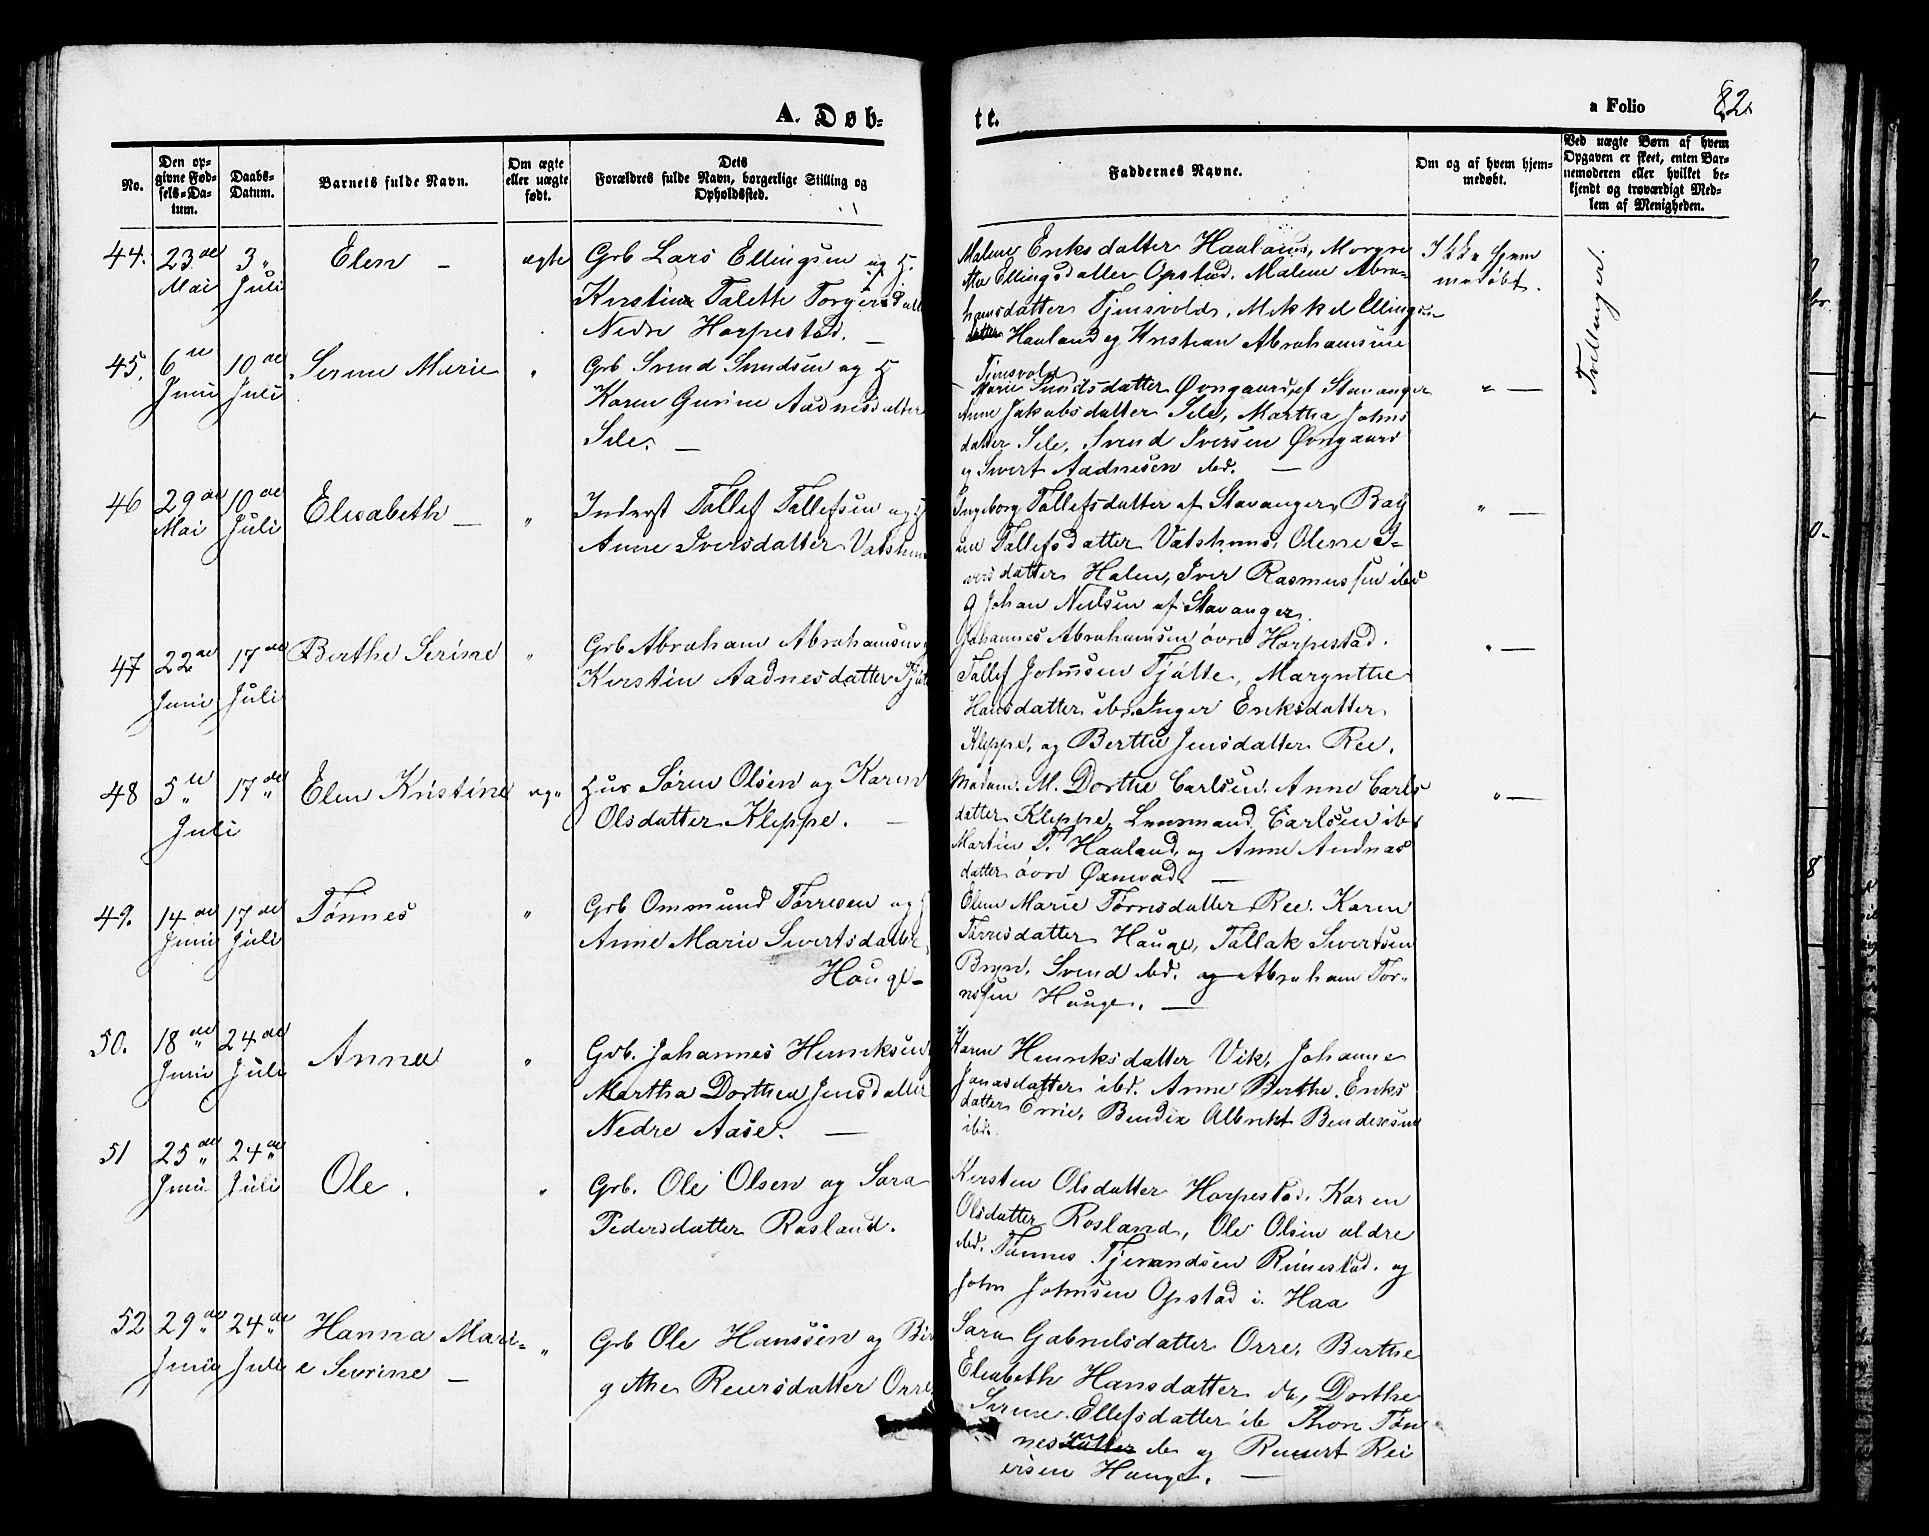 A. Døb-
te.
a Folio 82.
No.
Den op-
givne Fød-
sels-Da-
tum.
Daabs-
Datum.
Barnets fulde Navn.
Om ægte
eller uægte
født.
Dets
Forældres fulde Navn, borgerlige Stilling og
Opholdssted.
Faddernes Navne.
Om og af hvem hjem-
medøbt.
Ved uægte Børn af hvem
Opgaven er skeet, enten Bar-
nemoderen eller hvilket be-
kjendt og troværdigt Med-
lem af Menigheden.
44. 23de Mai
3" Juli
Elen –
ægte
Grb Lars Ellingsen og H.
Kirstine Talette Torgersdatt
Nedre Horpestad. –
Malene Eriksdatter Haaland, Margre
the Ellingsdatter Opstad. Malene Abra-
hamsdatter Tjensvold, Mikkel Ellingsen
Haaland og Kristian Abrahamsen
Tjensvold
Ikke hjem
medøbt.
Tvillinger.
45. 6te Juni
10de Juli
Serine Marie
"
Grb Svend Svendsen og H
Karen Gurine Aadnesdatter
Sele. –
Marie Svendsdatter Øvngaard af Stavanger
Anne Jakobsdatter Sele, Martha Johns
datter Sele, Svend Iversen Øvngaard
og Sivert Aadnesen ibd. –
" –
46 29de Mai
10de Juli
Elisabeth –
"
Inderst Tollef Tollefsen og H
Anne Iversdatter Vatshuus
Ingeborg Tollefsdatter af Stavanger, Bag
ne Tollefsdatter Vatshuus, Olene I-
versdatter Holen, Iver Rasmussen ibd
og Johan Nielsen af Stavanger.
" –
47 22de Juni
17de Juli
Berthe Serine
"
Grb Abraham Abrahamsen og
Kirstin Aadnesdatter Tjøtt
Johannes Abrahamsen øvre Horpestad.
Tollef Johnsen Tjøtte, Margrethe
Hansdatter ibd. Inger Eriksdatter
Kleppe, og Berthe Jensdatter Ree.
" –
48 5te Juli
17de
Elen Kristine
æg"
Hus Søren Olsen og Karen
Olsdatter Kleppe. –
Madam. M. Dorthe Carlsen. Anne Carls
datter Kleppe, Lensmand Carlsen ibd
Martin T. Haaland, og Anne Andreas
datter øvre Øxnevad. –
" –
49. 14de Juni
17de Juli
Tønnes
"
Grb Ommund Tørresen og H
Anne Marie Sivertsdatter
Hauge –
Elen Marie Tørresdatter Ree. Karen
Tørresdatter Hauge, Tallak Sivertsen
Bryn. Svend ibd. og Abraham Tør-
resen Hauge. –
50. 18de Juni
24de Juli
Anna
"
Grb. Johannes Henriksen
Martha Dorthea Jensdatter
Nedre Aase. –
Karen Henriksdatter Vik, Johanne
Jonasdatter ibd. Anne Berthe Eriks
datter Ervie, Bendix Albrekt Bendixsen
ibd.
51 25de Juni
24de Juli
Ole.
"
Grb. Ole Olsen og Sara
Pedersdatter Rosland.
Kirsten Olsdatter Horpestad. Karen
Olsdatter Rosland, Ole Olsen ældre
ibd. Tønnes Tjerandsen Rimestad. og
John Johnsen Opstad i. Haa
52 29de Juni
24de Juli
Hanna Mari-
e Severine –
"
Grb Ole Hanssen og Bir
githe Reiersdatter Orre
Sara Gabrielsdatter Orre, Berthe
Elisabeth Hansdatter do, Dorthe
Serine Ellefsdatter ib Thore Tøn
nes do og Reiert Rei
ersen Hauge. –